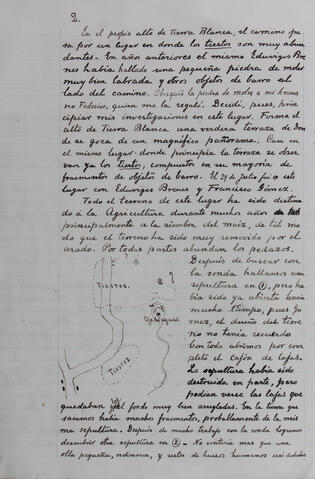 2.
En el propio alto de Tierra Blanca, el camino pa
sa por un lugar en donde los tiestos son muy abun
dantes. En años anteriores el mismo Eduvigis Bre
nes había hallado una pequeña piedra de moler
muy bien labrada y otros objetos de barro al
lado del camino. Obsequió la piedra de moler a mi herma
no Federico, quien me la regaló. Decidí, pues, prin
cipiar mis investigaciones en este lugar. Forma el
alto de Tierra Blanca una verdera terraza de don
de se goza de un magnífico panorama. Casi en
el mismo lugar donde principia la terraza se obser
van ya los tiestos, compuestos en su mayoría de
fragmentos de objetos de barro. El 29 de Julio fui a este
lugar con Eduviges Brenes y Francisco Gómez.
Todo el terreno de este lugar ha sido destina
do a la Agricultura durante muchos años
principalmente a la siembra del maíz, de tal mo
do que el terreno ha sido muy removido por el
arado. Por todas partes abundan los pedazos.
Después de buscar con
la sonda hallamos una
sepultura en 1, pero ha
bía sido ya abierta hacía
mucho tiempo, pues Gó
mez, el dueño del terre
no no tenía recuerdo
Con todo abrimos por com
pleto el cajón de lajas.
La sepultura había sido
destruida en parte, pero
podían verse las lajas que
quedaban del fondo muy bien arregladas. En la tierra que
sacamos había muchos fragmentos, probablemente de la mis
ma sepultura. Después de mucho trabajo con la sonda logramos
descubrir otra sepultura en 2.- No contenía mas que una
olla pequeña, ordinaria, y restos de huesos humanos casi deshechos
?
TIESTOS
2
?
1
TIESTOS